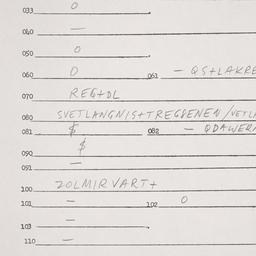 033 0
040 —
050 0
060 0 061 — QS+LAKRE
070 REG+DL
080 SVETLANGNIS+TREGDENEN/VETLA
081 $ 082 — QDAWERN
090 $
091 —
100 ZOLMIRVART+
101 — 102 0
103 —
110 —